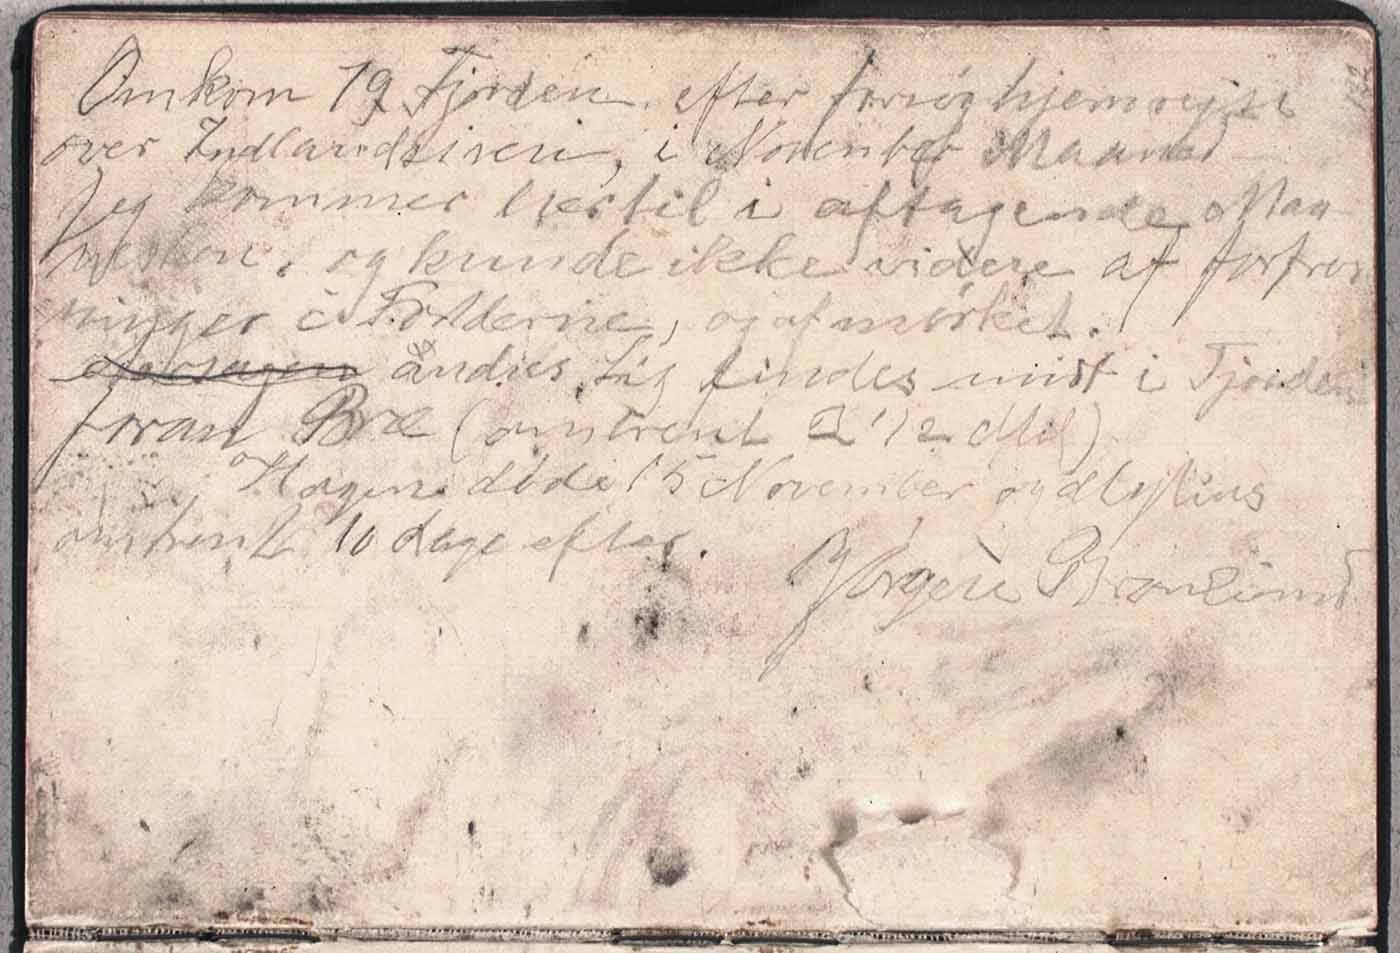 Omkom 79 Fjorden efter forsøg hjemrejse
over Indlandsisen, i November Maaned
Jeg kommer hertil i aftagende Maa-
neskin, og kunde ikke videre af forfros-
ninger i Fødderne, og af mørket.
andres Lig findes midt i Fjorden
foran Bræ (omtrent 2 1/2 Mil)
Hagen døde 15 November og Mylius
omtrent 10 dage efter.
Jørgen Brønlund
132